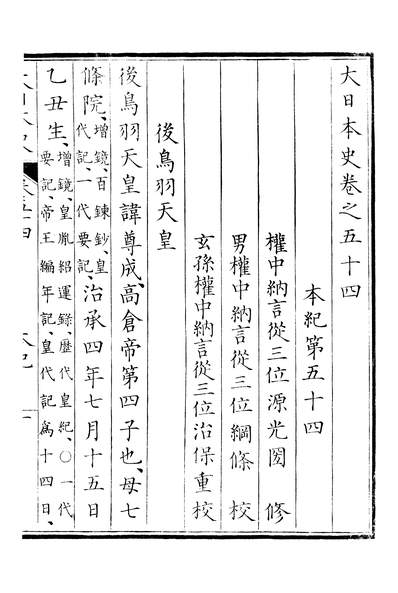 大日本史卷之五十四
本紀第五十四
權中納言從三位源光圀 修
男權中納言從三位綱條 校
玄孫權中納言從三位治保重校
後鳥羽天皇
後鳥羽天皇諱尊成、高倉帝第四子也、母七
條院、增鏡、百鍊鈔、皇
代記、一代要記、治承四年七月十五日
乙丑生、增鏡、皇胤紹運錄、歷代皇紀、〇一代
要記、帝王編年記、皇代記爲十四日、